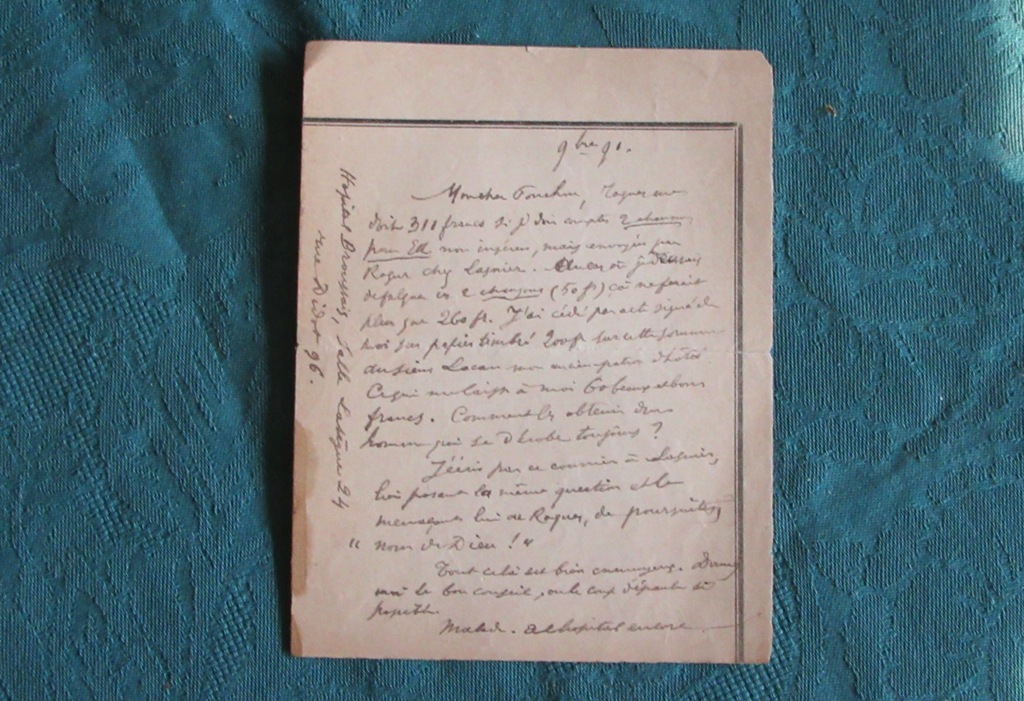 9bre 91.
Mon cher Fouchu, Roques me
doit 311 francs si j'dois compter 2 chansons
pour Elle non insérées, mais envoyées par
Roques chez Lasnier. Au cas où je devrais
défalquer ces 2 chansons (50 fr) ça ne ferait
plus que 260 fr. J'ai cédé par acte signé de
moi sur papier timbré 200 fr sur cette somme
au sieur Lacan mon
Ce qui me laisse à moi 60 beaux et bons
francs. Comment les obtenir d'un
homme qui se dérobe toujours ?
J'écris par ce courrier à Lasnier,
lui posant la même question et le
menaçant lui de Roques, de poursuites,
" nom de Dieu ! "
Tout cela est bien ennuyeux. Donnez
moi le bon conseil, ou le coup d'épaule si
possible.
Malade. à l'hôpital encore
Hôpital Broussais, Salle Lasègue 24
rue Didot 96.